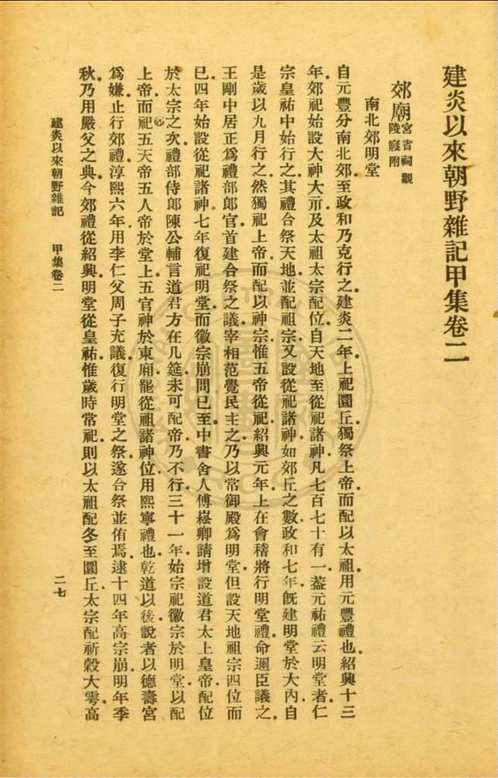 建炎以來朝野雜記甲集卷二
郊廟宮古祠觀陵寢附
南北郊明堂
自元豐分南北郊至政和乃克行之建炎二年上祀圜丘獨祭上帝而配以太祖用元豐禮也紹興十三
年郊祀始設大神大示及太祖太宗配位自天地至從祀諸神凡七百七十有一蓋元祐禮云明堂者仁
宗皇祐中始行之其禮合祭天地並配祖宗又設從祀諸神如郊丘之數政和七年旣建明堂於大內自
是歲以九月行之然獨祀上帝而配以神宗惟五帝從祀紹興元年上在會稽將行明堂禮命邇臣議之
王剛中居正爲禮部郎官首建合祭之議宰相范覺民主之乃以常御殿爲明堂但設天地祖宗四位而
已四年始設從祀諸神七年復祀明堂而徽宗崩問已至中書舍人傅崧卿請增設道君太上皇帝配位
於太宗之次禮部侍郎陳公輔言道君方在几筵未可配帝乃不行三十一年始宗祀徽宗於明堂以配
上帝而祀五天帝五人帝於堂上五官神於東廂罷從祖諸神位用熙寧禮也乾道以後說者以德壽宮
爲嫌止行郊禮淳熙六年用李仁父周子充議復行明堂之祭遂合祭並侑焉逮十四年高宗崩明年季
秋乃用嚴父之典今郊禮從紹興明堂從皇祐惟歲時常祀則以太祖配冬至圜丘太宗配祈穀大雩高
建炎以來朝野雜記 甲集卷二
二七